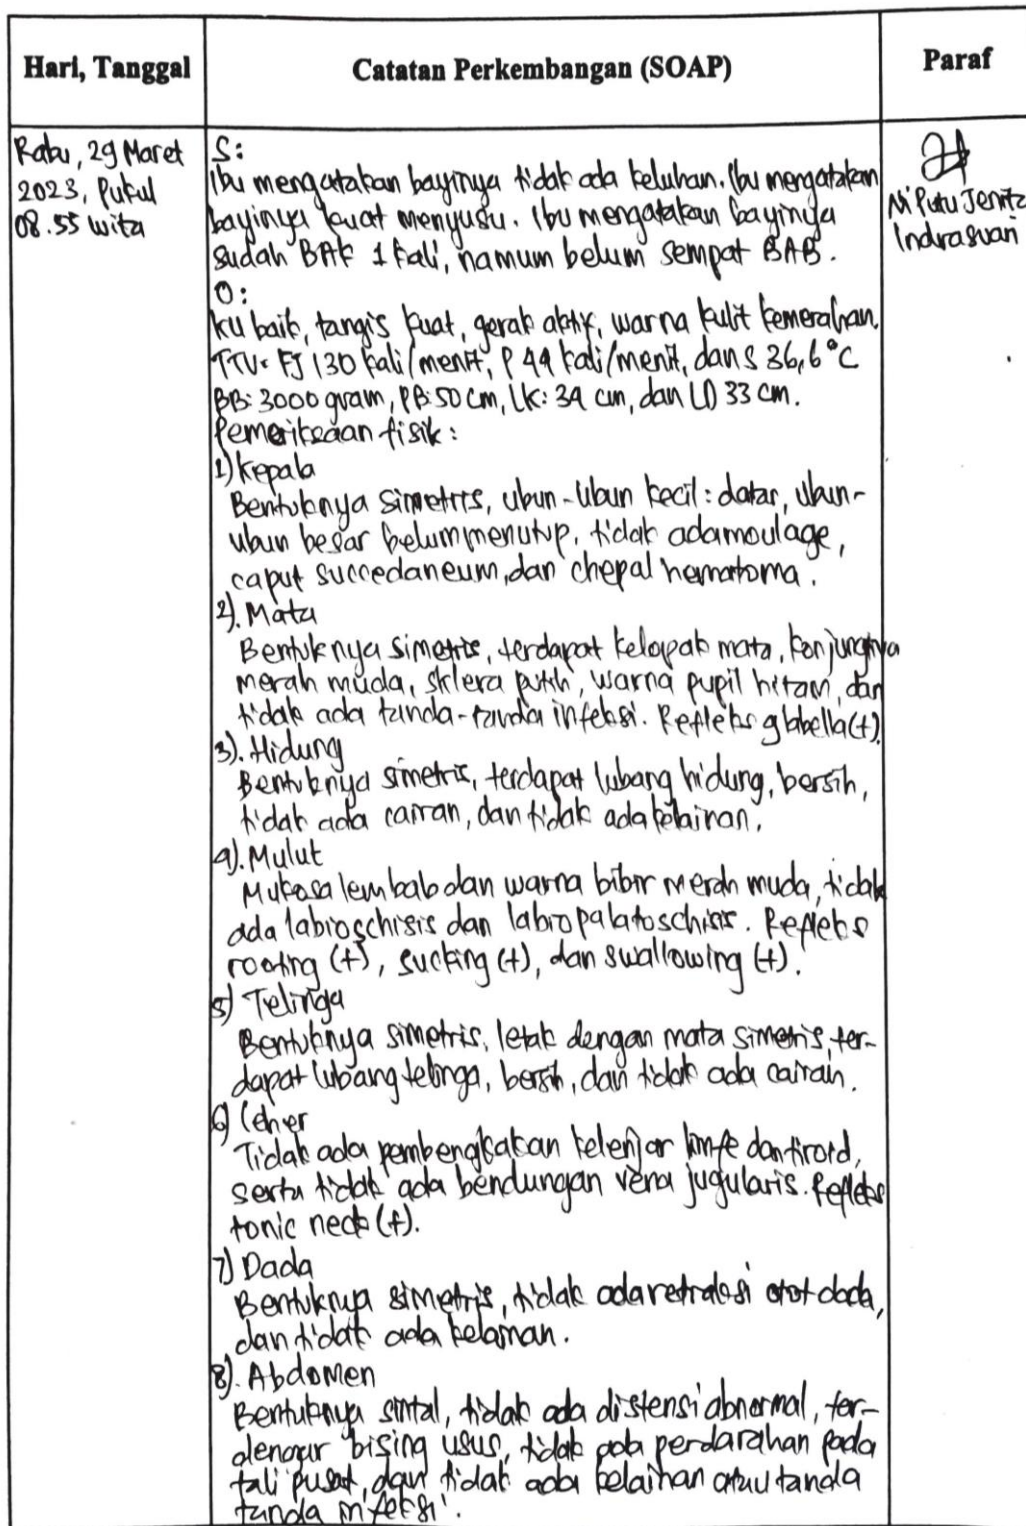 Hari, Tanggal
Catatan Perkembangan (SOAP)
Paraf
Rabu, 29 Maret
2023, Pukul
08.55 wita
S:
Ibu mengatakan bayinya tidak ada keluhan. Ibu mengatakan
bayinya kuat menyusu. Ibu mengatakan bayinya
sudah BAK 1 kali, namum belum sempat BAB.
O:
KU baik, tangis kuat, gerak aktif, warna kulit kemerahan.
TTV: FJ 130 kali/menit, P 44 kali/menit, dan S 36,6°C
BB: 3000 gram, PB: 50 cm, LK: 34 cm, dan LD 33 cm.
Pemeriksaan fisik:
1) Kepala
Bentuknya simetris, ubun-ubun kecil: datar, ubun-
ubun besar belum menutup, tidak ada moulage,
caput succedaneum, dan chepal hematoma.
2). Mata
Bentuknya simetris, terdapat kelopak mata, konjungtva
merah muda, sklera putih, warna pupil hitam, dan
tidak ada tanda-tanda infeksi. Refleks glabella (+)
3). Hidung
Bentuknya simetris, terdapat lubang hidung, bersih,
tidak ada cairan, dan tidak ada kelainan.
4). Mulut
Mukosa lembab dan warna bibir merah muda, tidak
ada labioschisis dan labiopalatoschisis. Refleks
rooting (+), sucking (+), dan swallowing (+).
5) Telinga
Bentuknya simetris, letak dengan mata simetris, ter-
dapat lubang telinga, bersih, dan tidak ada cairan.
6) Leher
Tidak ada pembengkakan kelenjar limfe dan tiroid,
serta tidak ada bendungan vena jugularis. Refleks
tonic neck (+).
7) Dada
Bentuknya simetris, tidak ada retraksi otot dada,
dan tidak ada kelainan.
8). Abdomen
Bentuknya sintal, tidak ada distensi abnormal, ter-
dengar bising usus, tidak ada perdarahan pada
tali pusat, dan tidak ada kelainan atau tanda
tanda infeksi.
Ni Putu Jenita
Indraswari